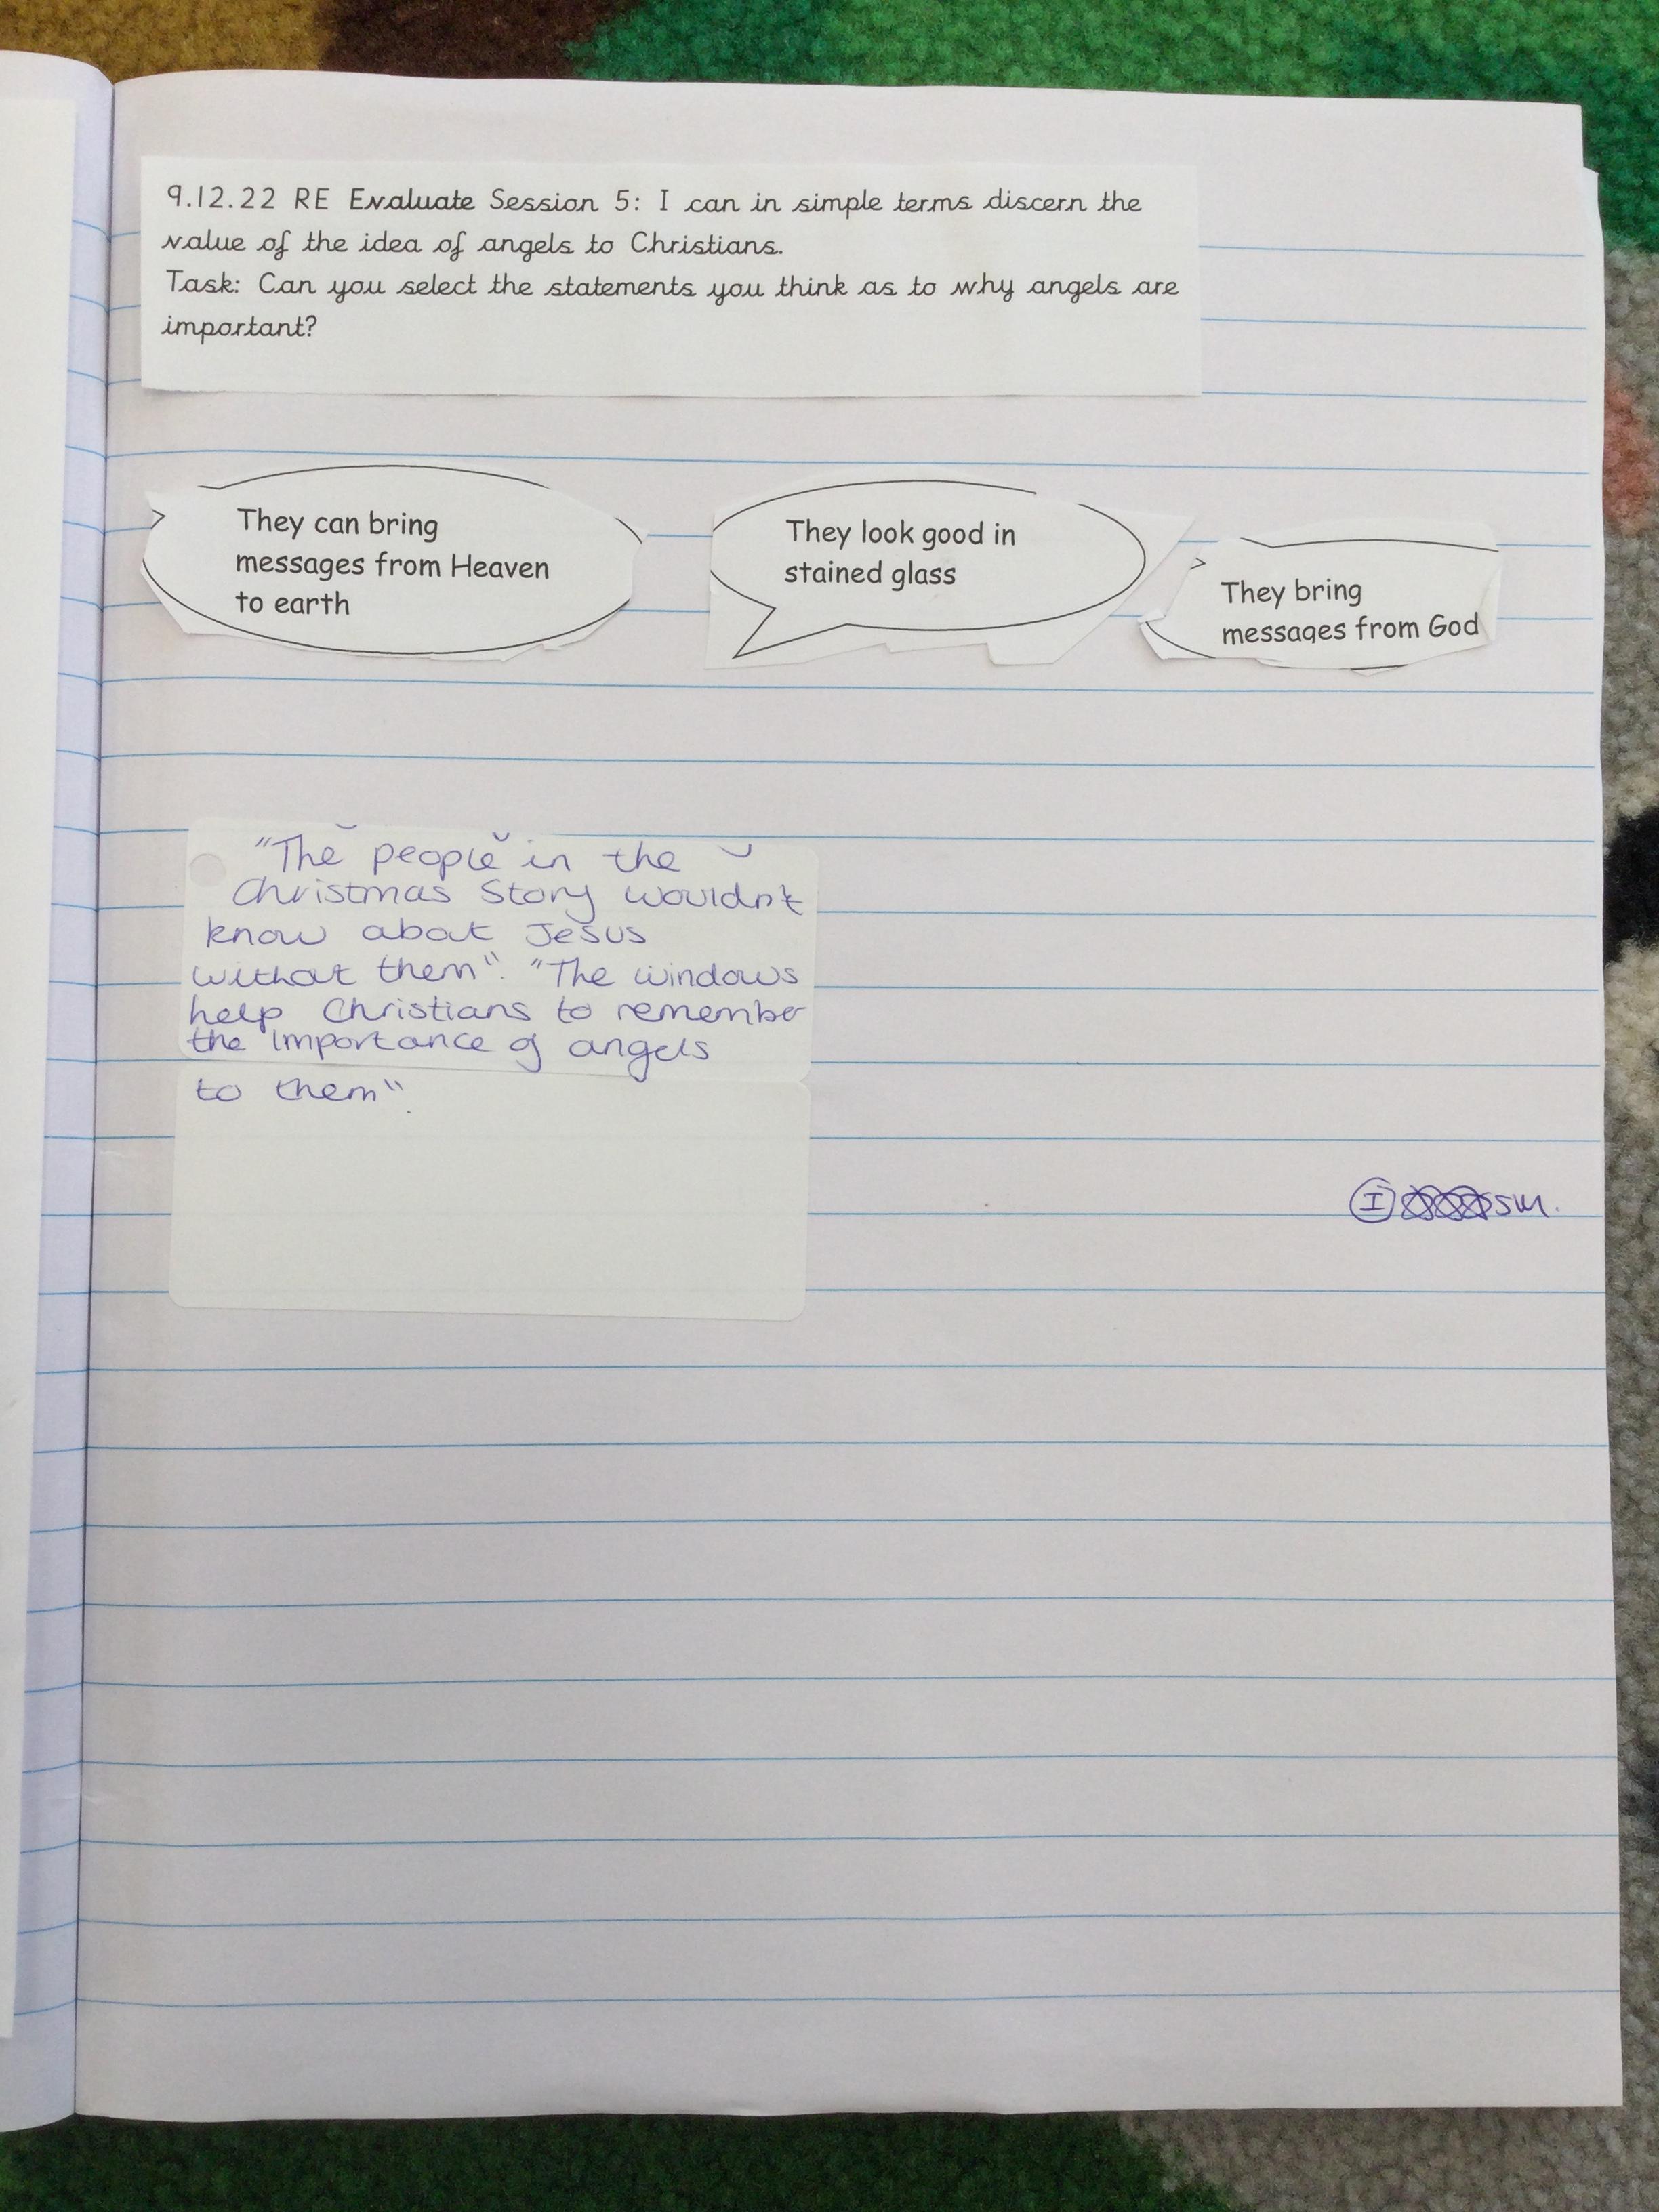 9.12.22 RE Evaluate Session 5: I can in simple terms discern the
value of the idea of angels to Christians.
Task: Can you select the statements you think as to why angels are
important?
They can bring
messages from Heaven
to earth
They look good in
stained glass
They bring
messages from God
"The people in the
Christmas Story wouldn't
know about Jesus
without them". "The windows
help Christians to remember
the importance of angels
to them".
I SM.